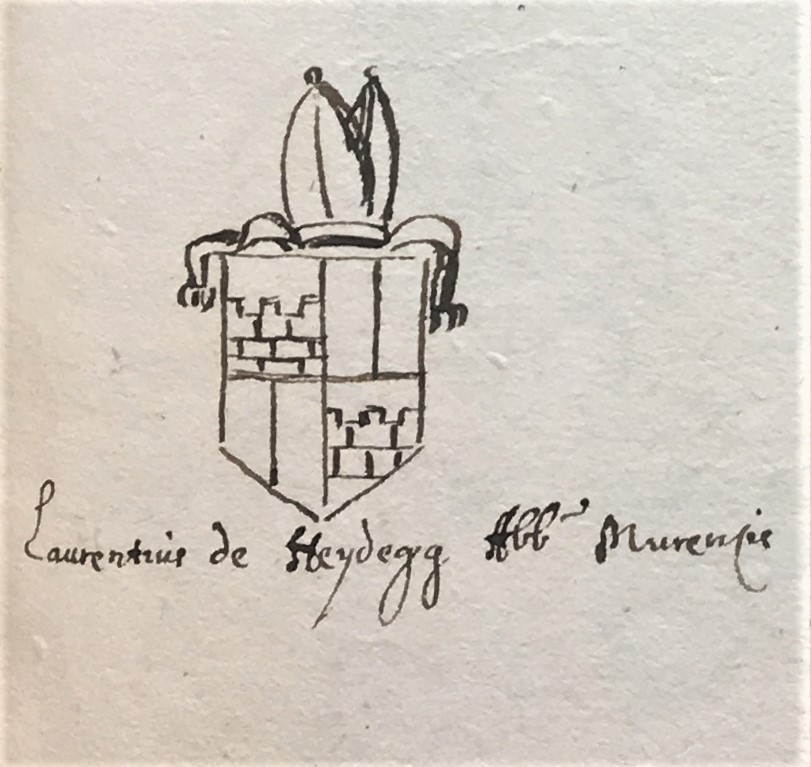 Laurentius de Heydegg Abb Murensis